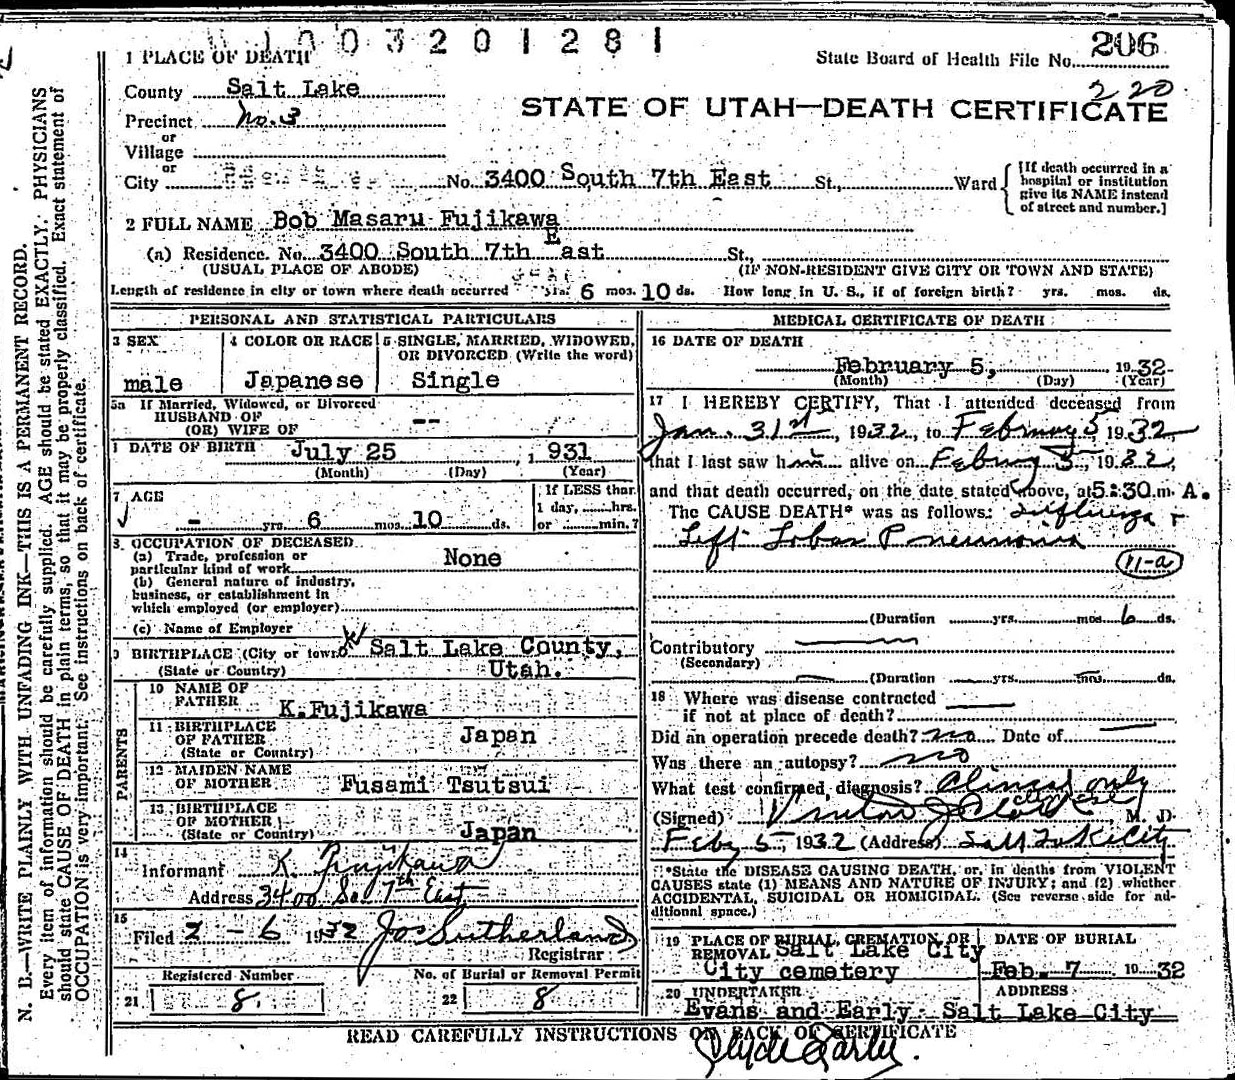 1003201281
1 PLACE OF DEATH
State Board of Health File No. 206
220
County Salt Lake
STATE OF UTAH—DEATH CERTIFICATE
Precinct No. 3
or
Village
or
City No. 3400 South 7th East St., Ward
[If death occurred in a
hospital or institution
give its NAME instead
of street and number.]
2 FULL NAME Bob Masaru Fujikawa
(a) Residence. No. 3400 South 7th East St.,
(USUAL PLACE OF ABODE) (IF NON-RESIDENT GIVE CITY OR TOWN AND STATE)
Length of residence in city or town where death occurred yrs. 6 mos. 10 ds. How long in U. S., if of foreign birth? yrs. mos. ds.
PERSONAL AND STATISTICAL PARTICULARS
3 SEX
male
4 COLOR OR RACE
Japanese
5 SINGLE, MARRIED, WIDOWED,
OR DIVORCED (Write the word)
Single
5a If Married, Widowed, or Divorced
HUSBAND OF
(OR) WIFE OF --
DATE OF BIRTH July 25 , 1931
(Month) (Day) (Year)
7 AGE
- yrs. 6 mos. 10 ds.
If LESS than
1 day, hrs.
or min.?
8. OCCUPATION OF DECEASED
(a) Trade, profession or
particular kind of work None
(b) General nature of industry,
business, or establishment in
which employed (or employer)
(c) Name of Employer
9 BIRTHPLACE (City or town) Salt Lake County,
(State or Country) Utah.
PARENTS
10 NAME OF
FATHER K.Fujikawa
11 BIRTHPLACE
OF FATHER Japan
(State or Country)
12 MAIDEN NAME
OF MOTHER Fusami Tsutsui
13 BIRTHPLACE
OF MOTHER
(State or Country) Japan
14
Informant K. Fujikawa
Address 3400 So. 7th East
15
Filed 2 - 6 1932 Jos Sutherland
Registrar
Registered Number
21 8.
No. of Burial or Removal Permit
22 8
MEDICAL CERTIFICATE OF DEATH
16 DATE OF DEATH
February 5, 1932
(Month) (Day) (Year)
17 I HEREBY CERTIFY, That I attended deceased from
Jan. 31st, 1932, to February 5 1932
that I last saw him alive on February 5, 1932,
and that death occurred, on the date stated above, at 5:30 m. A.
The CAUSE DEATH* was as follows: Influenza +
Left Lobar Pneumonia
11-a
(Duration yrs. mos. 6 ds.
Contributory
(Secondary)
(Duration yrs. mos. ds.
18 Where was disease contracted
if not at place of death?
Did an operation precede death? no Date of
Was there an autopsy? no
What test confirmed diagnosis? Clinical only
(Signed) M. D.
Feby 5, 1932 (Address) Salt Lake City
*State the DISEASE CAUSING DEATH, or, in deaths from VIOLENT
CAUSES state (1) MEANS AND NATURE OF INJURY; and (2) whether
ACCIDENTAL, SUICIDAL OR HOMICIDAL. (See reverse side for ad-
ditional space.)
19 PLACE OF BURIAL, CREMATION, OR
REMOVAL Salt Lake City
City cemetery
DATE OF BURIAL
Feb. 7 1932
20 UNDERTAKER ADDRESS
Evans and Early Salt Lake City
READ CAREFULLY INSTRUCTIONS ON BACK OF CERTIFICATE
Clyde Early.
N. B.—WRITE PLAINLY WITH UNFADING INK—THIS IS A PERMANENT RECORD.
Every item of information should be carefully supplied. AGE should be stated EXACTLY. PHYSICIANS
should state CAUSE OF DEATH in plain terms, so that it may be properly classified. Exact statement of
OCCUPATION is very important. See instructions on back of certificate.